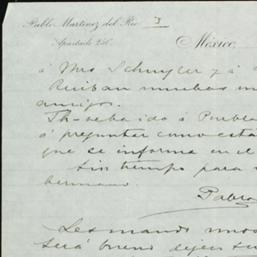 Pablo Martinez del Rio
Apartado 250
México,
á Mrs Schuyler y á
Ruiban muchas
amigos.
Th. veba ido á Puebla
á preguntar como esta
que se informa en el
sin tiempo para
hermano.
Pablo
Les mando unos
será bueno dejen